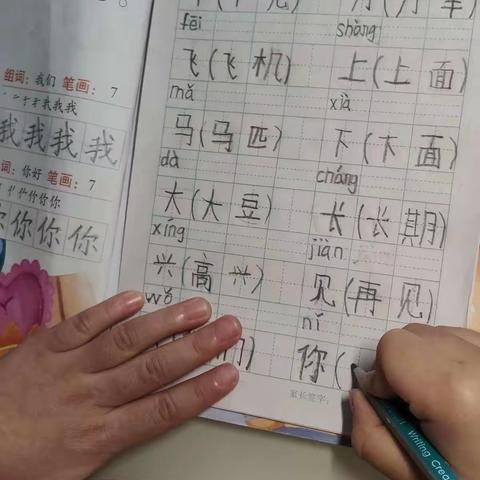 组词：我们 笔画：7
我我我
我 我 我 我
词：你好 笔画：7
你 你 你
fēi shàng
飞(飞机) 上(上面)
mǎ xià
马(马匹) 下(下面)
dà cháng
大(大豆) 长(长期)
xíng jiàn
兴(高兴) 见(再见)
wǒ nǐ
们) 你(
家长签字：
Writing Crea